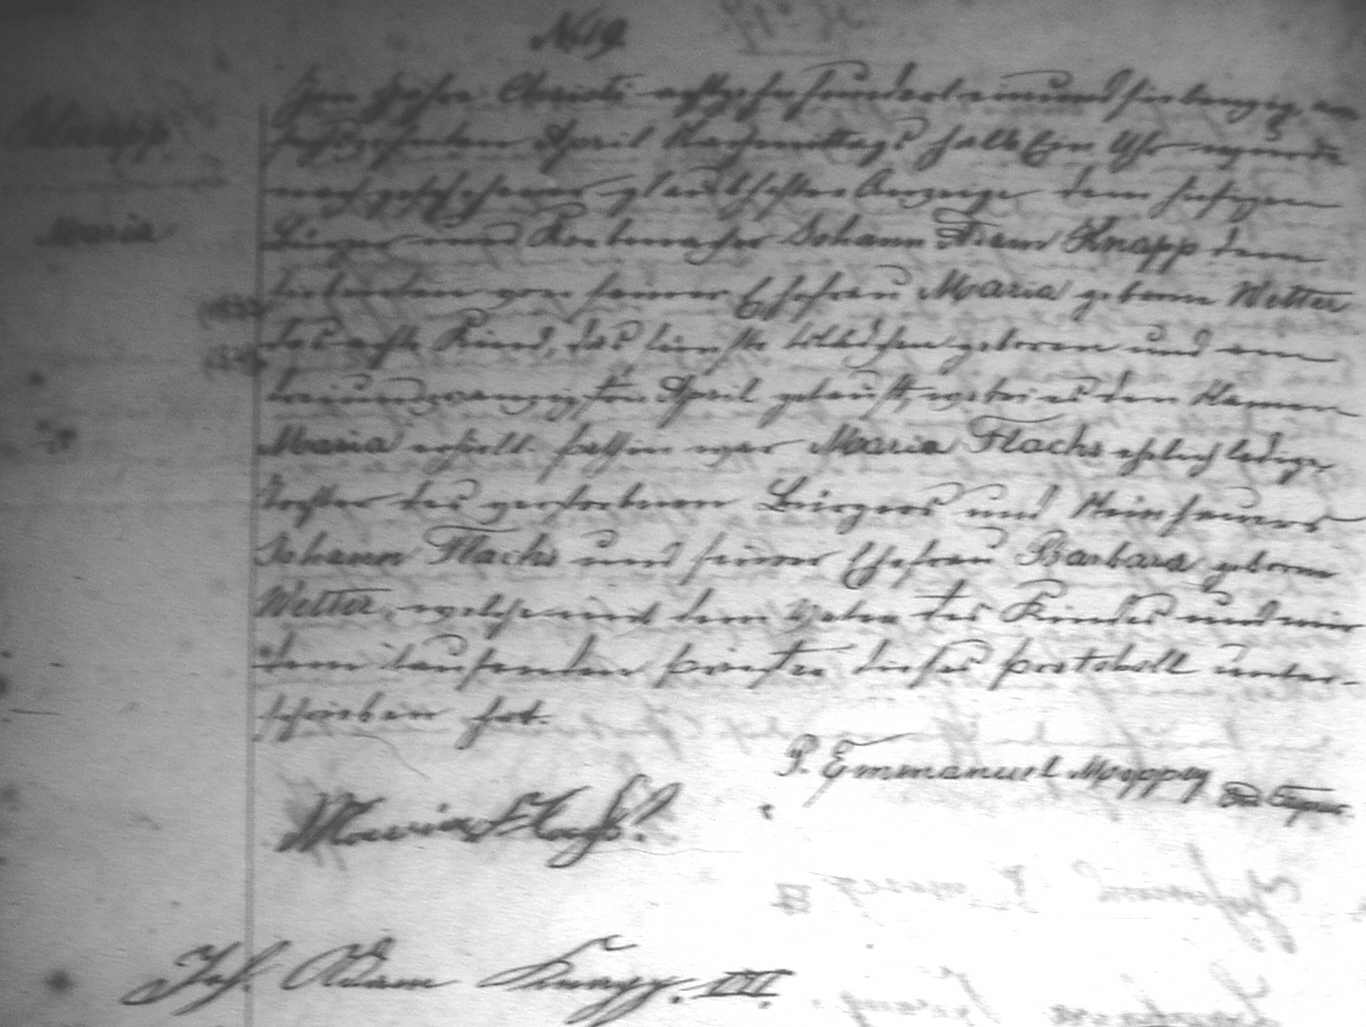 No 19.
Knapp
Maria
Im Jahre Christi achtzehnhundert einundsiebenzig am
sechszehnten April Nachmittags halb Ein Uhr wurde
nach geschehener glaubhafter Anzeige dem hiesigen
Bürger und Johann Adam Knapp dem
von seiner Ehefrau Maria geborne Wetter
das achte Kind, das fünfte Mädchen geboren und am
dreiundzwanzigsten April getauft, wobei es den Namen
Maria erhielt. Pathin war Maria Flachs ehelich ledige
Tochter des verstorbenen Bürgers und
Johann Flachs und seiner Ehefrau Barbara geborne
Wetter, welche mit dem Vater des Kindes und mir
dem taufenden Priester dieses Protokoll unter-
schrieben hat.
P. Emmanuel
Maria Flachs.
Joh. Adam Knapp. III.